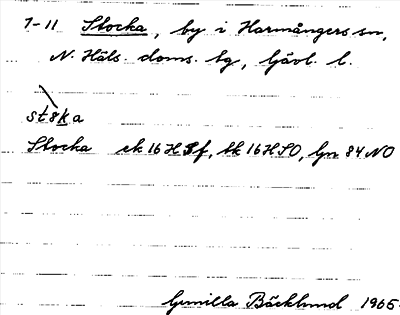 7-11 Stocka, by i Harmångers sn,
N. Häls. doms. tg, Gävl. l.
Stocka ek 16 H Sf, tk 16 H SO, Gn 84 NO
Gunilla Bäcklund 1965.